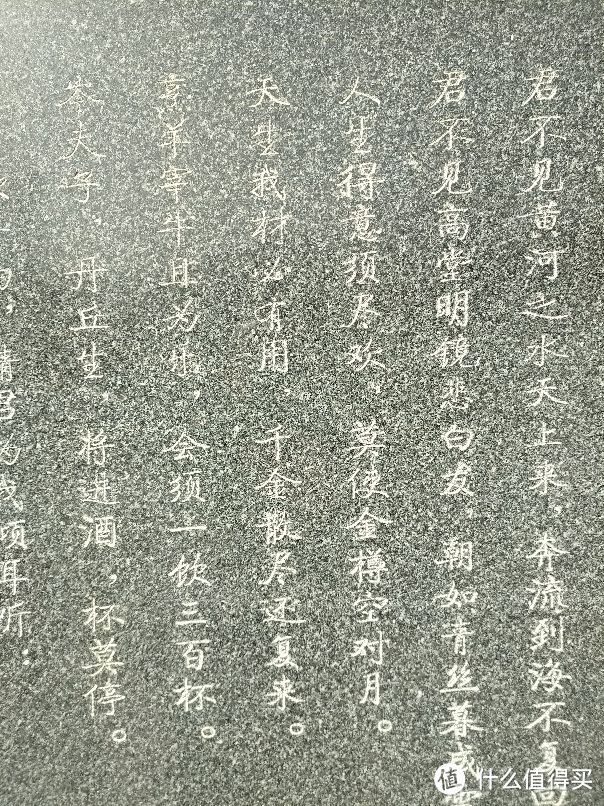 君不见黄河之水天上来,奔流到海不复回
君不见高堂明镜悲白发,朝如青丝暮成雪
人生得意须尽欢,莫使金樽空对月。
天生我材必有用,千金散尽还复来。
烹羊宰牛且为乐,会须一饮三百杯。
岑夫子,丹丘生,将进酒,杯莫停。
一曲,请君为我倾耳听:
值 什么值得买